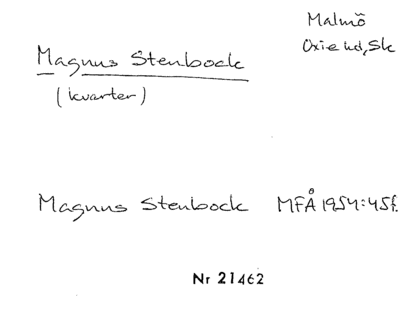 Malmö
Oxie hd, Sk
Magnus Stenbock
(kvarter)
Magnus Stenbock MFÅ 1954:45f.
Nr 21462